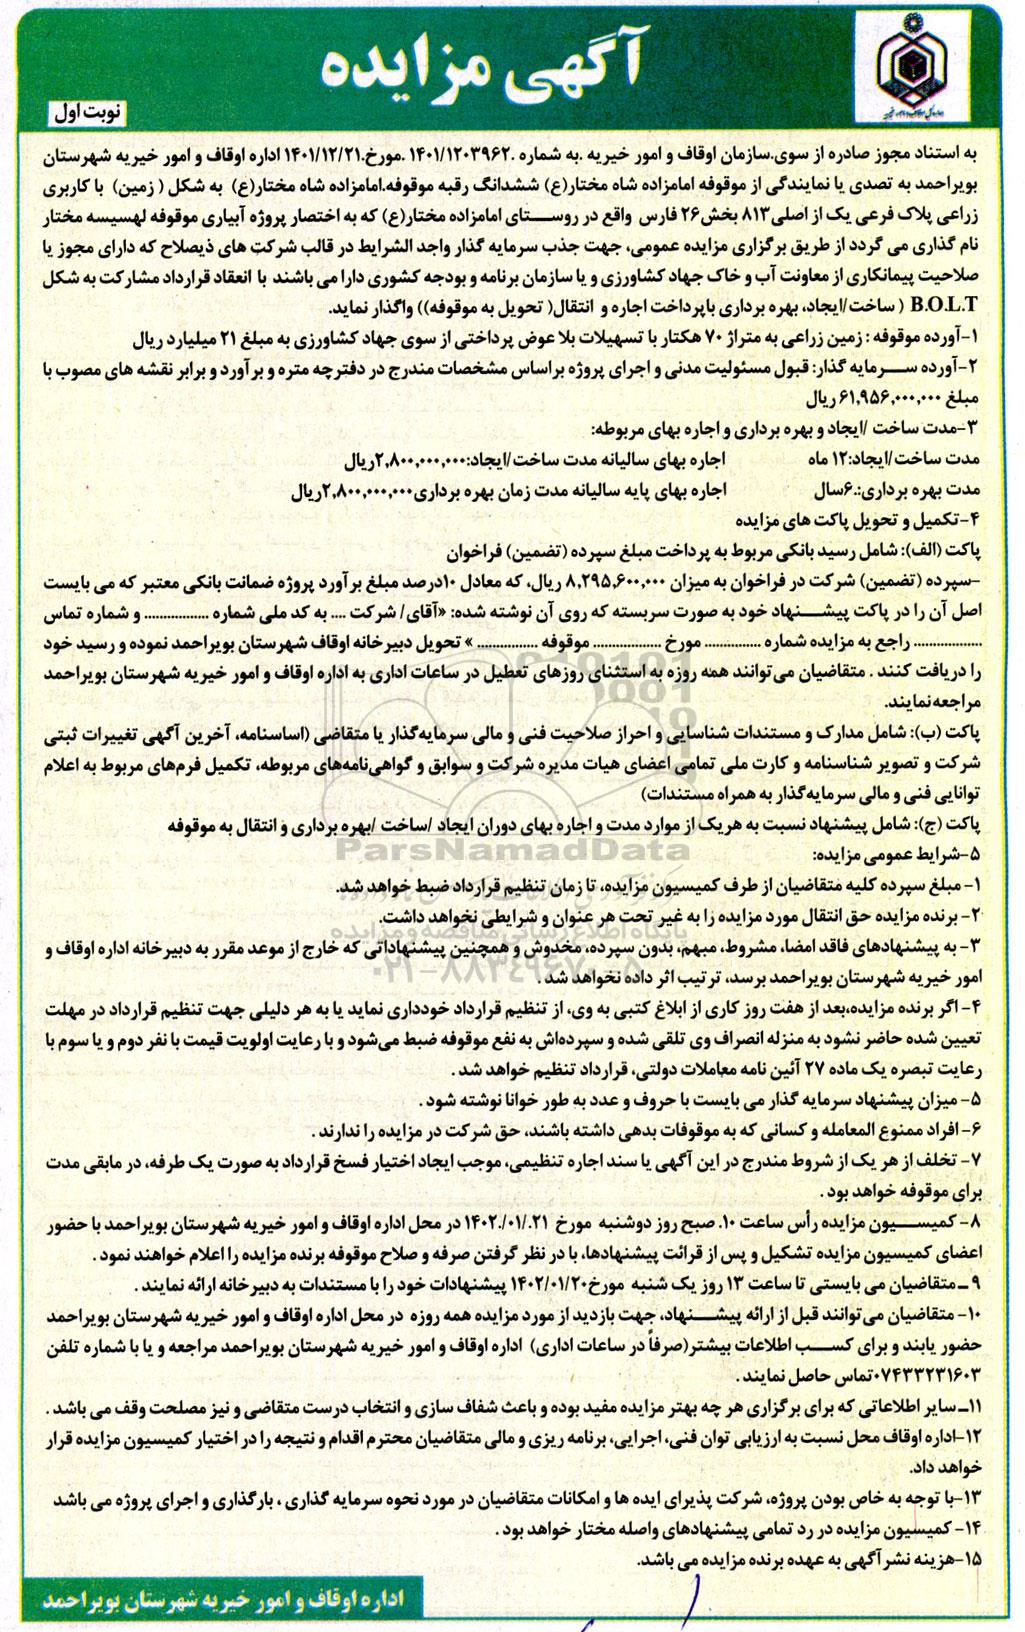 آگهی مزایده
نوبت اول
به استناد مجوز صادره از سوی.سازمان اوقاف و امور خیریه .به شماره .۱۴۰۱/۱۲۰۳۹۶۲ .مورخ.۱۴۰۱/۱۲/۲۱ اداره اوقاف و امور خیریه شهرستان
بویراحمد به تصدی یا نمایندگی از موقوفه امامزاده شاه مختار(ع) ششدانگ رقبه موقوفه.امامزاده شاه مختار(ع) به شکل ( زمین) با کاربری
زراعی پلاک فرعی یک از اصلی۸۱۳ بخش۲۶ فارس واقع در روستای امامزاده مختار(ع) که به اختصار پروژه آبیاری موقوفه لهسیسه مختار
نام گذاری می گردد از طریق برگزاری مزایده عمومی، جهت جذب سرمایه گذار واجد الشرایط در قالب شرکت های ذیصلاح که دارای مجوز یا
صلاحیت پیمانکاری از معاونت آب و خاک جهاد کشاورزی و یا سازمان برنامه و بودجه کشوری دارا می باشند با انعقاد قرارداد مشارکت به شکل
B.O.L.T ( ساخت/ایجاد، بهره برداری باپرداخت اجاره و انتقال( تحویل به موقوفه)) واگذار نماید.
۱-آورده موقوفه : زمین زراعی به متراژ ۷۰ هکتار با تسهیلات بلا عوض پرداختی از سوی جهاد کشاورزی به مبلغ ۲۱ میلیارد ریال
۲-آورده سرمایه گذار: قبول مسئولیت مدنی و اجرای پروژه براساس مشخصات مندرج در دفترچه متره و برآورد و برابر نقشه های مصوب با
مبلغ ۶۱,۹۵۶,۰۰۰,۰۰۰ ریال
۳-مدت ساخت /ایجاد و بهره برداری و اجاره بهای مربوطه:
مدت ساخت/ایجاد:۱۲ ماه اجاره بهای سالیانه مدت ساخت/ایجاد:۲,۸۰۰,۰۰۰,۰۰۰ریال
مدت بهره برداری:.۶سال اجاره بهای پایه سالیانه مدت زمان بهره برداری۲,۸۰۰,۰۰۰,۰۰۰ریال
۴-تکمیل و تحویل پاکت های مزایده
پاکت (الف): شامل رسید بانکی مربوط به پرداخت مبلغ سپرده (تضمین) فراخوان
-سپرده (تضمین) شرکت در فراخوان به میزان ۸,۲۹۵,۶۰۰,۰۰۰ ریال، که معادل ۱۰درصد مبلغ برآورد پروژه ضمانت بانکی معتبر که می بایست
اصل آن را در پاکت پیشنهاد خود به صورت سربسته که روی آن نوشته شده: «آقای/ شرکت .... به کد ملی شماره ................. و شماره تماس
.................. راجع به مزایده شماره ............... مورخ .................. موقوفه ................ » تحویل دبیرخانه اوقاف شهرستان بویراحمد نموده و رسید خود
را دریافت کنند . متقاضیان می‌توانند همه روزه به استثنای روزهای تعطیل در ساعات اداری به اداره اوقاف و امور خیریه شهرستان بویراحمد
مراجعه‌نمایند.
پاکت (ب): شامل مدارک و مستندات شناسایی و احراز صلاحیت فنی و مالی سرمایه‌گذار یا متقاضی (اساسنامه، آخرین آگهی تغییرات ثبتی
شرکت و تصویر شناسنامه و کارت ملی تمامی اعضای هیات مدیره شرکت و سوابق و گواهی‌نامه‌های مربوطه، تکمیل فرم‌های مربوط به اعلام
توانایی فنی و مالی سرمایه‌گذار به همراه مستندات)
پاکت (ج): شامل پیشنهاد نسبت به هریک از موارد مدت و اجاره بهای دوران ایجاد /ساخت /بهره برداری و انتقال به موقوفه
ParsNamadData
۵-شرایط عمومی مزایده:
۱- مبلغ سپرده کلیه متقاضیان از طرف کمیسیون مزایده، تا زمان تنظیم قرارداد ضبط خواهد شد.
۲- برنده مزایده حق انتقال مورد مزایده را به غیر تحت هر عنوان و شرایطی نخواهد داشت.
پایگاه اطلاع رسانی مناقصه و مزایده
۳- به پیشنهادهای فاقد امضا، مشروط، مبهم، بدون سپرده، مخدوش و همچنین پیشنهاداتی که خارج از موعد مقرر به دبیرخانه اداره اوقاف و
امور خیریه شهرستان بویراحمد برسد، ترتیب اثر داده نخواهد شد .
۴- اگر برنده مزایده،بعد از هفت روز کاری از ابلاغ کتبی به وی، از تنظیم قرارداد خودداری نماید یا به هر دلیلی جهت تنظیم قرارداد در مهلت
تعیین شده حاضر نشود به منزله انصراف وی تلقی شده و سپرده‌اش به نفع موقوفه ضبط می‌شود و با رعایت اولویت قیمت با نفر دوم و یا سوم با
رعایت تبصره یک ماده ۲۷ آئین نامه معاملات دولتی، قرارداد تنظیم خواهد شد .
۵- میزان پیشنهاد سرمایه گذار می بایست با حروف و عدد به طور خوانا نوشته شود .
۶- افراد ممنوع المعامله و کسانی که به موقوفات بدهی داشته باشند، حق شرکت در مزایده را ندارند .
۷- تخلف از هر یک از شروط مندرج در این آگهی یا سند اجاره تنظیمی، موجب ایجاد اختیار فسخ قرارداد به صورت یک طرفه، در مابقی مدت
برای موقوفه خواهد بود .
۸- کمیسیون مزایده رأس ساعت ۱۰. صبح روز دوشنبه مورخ ۱۴۰۲/۰۱/.۲۱ در محل اداره اوقاف و امور خیریه شهرستان بویراحمد با حضور
اعضای کمیسیون مزایده تشکیل و پس از قرائت پیشنهادها، با در نظر گرفتن صرفه و صلاح موقوفه برنده مزایده را اعلام خواهند نمود .
۹ ـ متقاضیان می بایستی تا ساعت ۱۳ روز یک شنبه مورخ۱۴۰۲/۰۱/۲۰ پیشنهادات خود را با مستندات به دبیرخانه ارائه نمایند .
۱۰- متقاضیان می‌توانند قبل از ارائه پیشنهاد، جهت بازدید از مورد مزایده همه روزه در محل اداره اوقاف و امور خیریه شهرستان بویراحمد
حضور یابند و برای کسب اطلاعات بیشتر(صرفاً در ساعات اداری) اداره اوقاف و امور خیریه شهرستان بویراحمد مراجعه و یا با شماره تلفن
۰۷۴۳۳۲۳۱۶۰۳تماس حاصل نمایند .
۱۱ـ سایر اطلاعاتی که برای برگزاری هر چه بهتر مزایده مفید بوده و باعث شفاف سازی و انتخاب درست متقاضی و نیز مصلحت وقف می باشد .
۱۲-اداره اوقاف محل نسبت به ارزیابی توان فنی، اجرایی، برنامه ریزی و مالی متقاضیان محترم اقدام و نتیجه را در اختیار کمیسیون مزایده قرار
خواهد داد.
۱۳-با توجه به خاص بودن پروژه، شرکت پذیرای ایده ها و امکانات متقاضیان در مورد نحوه سرمایه گذاری ، بارگذاری و اجرای پروژه می باشد
۱۴- کمیسیون مزایده در رد تمامی پیشنهادهای واصله مختار خواهد بود .
۱۵-هزینه نشر آگهی به عهده برنده مزایده می باشد.
اداره اوقاف و امور خیریه شهرستان بویراحمد